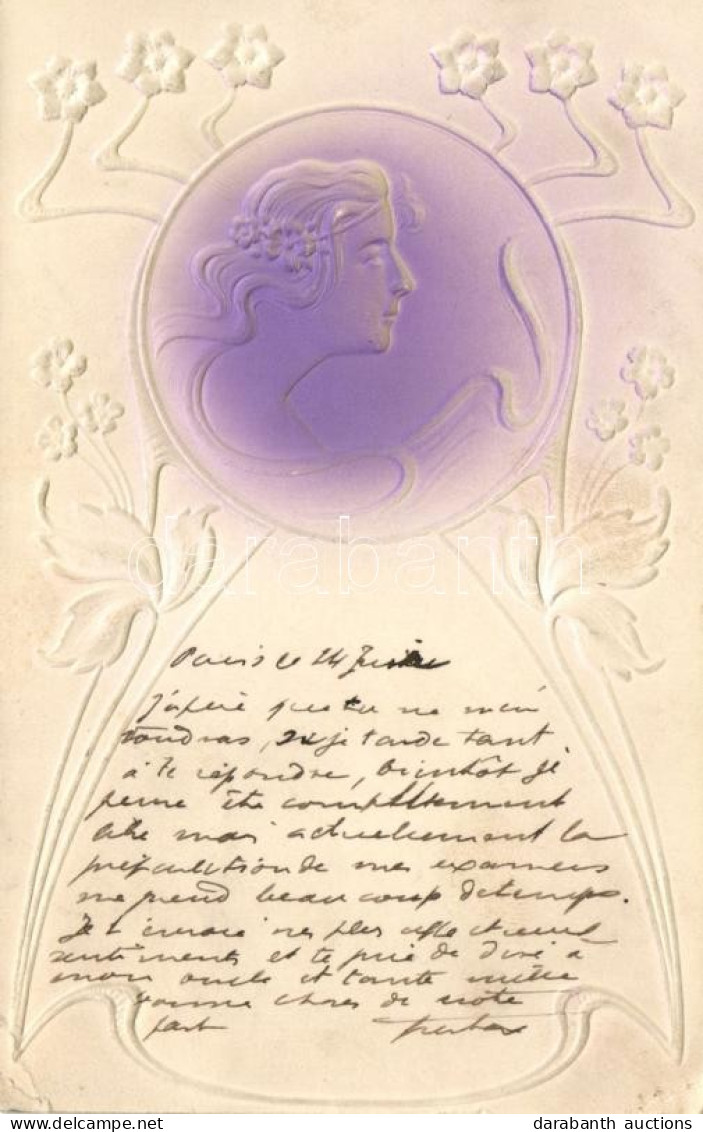 darabanth
Paris le 24
J'espère que tu ne m'en
voudras, si je tarde tant
à te répondre, bientôt je
pense être complètement
mais actuellement la
préparation de mes examens
me prend beaucoup de temps.
Je t'envoie mes plus affectueux
sentiments et te prie de dire à
mon oncle et tante mille
bonnes choses de notre
part
darabanth auctions